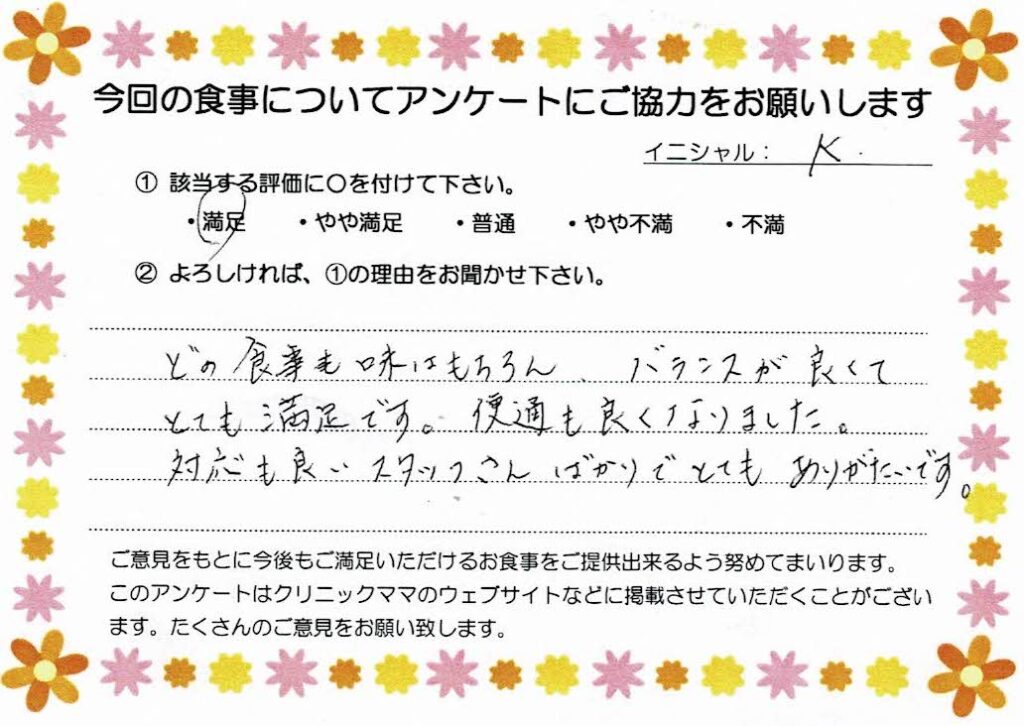 今回の食事についてアンケートにご協力をお願いします
イニシャル： K.
① 該当する評価に〇を付けて下さい。
・満足 ・やや満足 ・普通 ・やや不満 ・不満
② よろしければ、①の理由をお聞かせ下さい。
どの食事も味はもちろん、バランスが良くて
とても満足です。便通も良くなりました。
対応も良いスタッフさんばかりでとてもありがたいです。
ご意見をもとに今後もご満足いただけるお食事をご提供出来るよう努めてまいります。
このアンケートはクリニックママのウェブサイトなどに掲載させていただくことがござい
ます。たくさんのご意見をお願い致します。